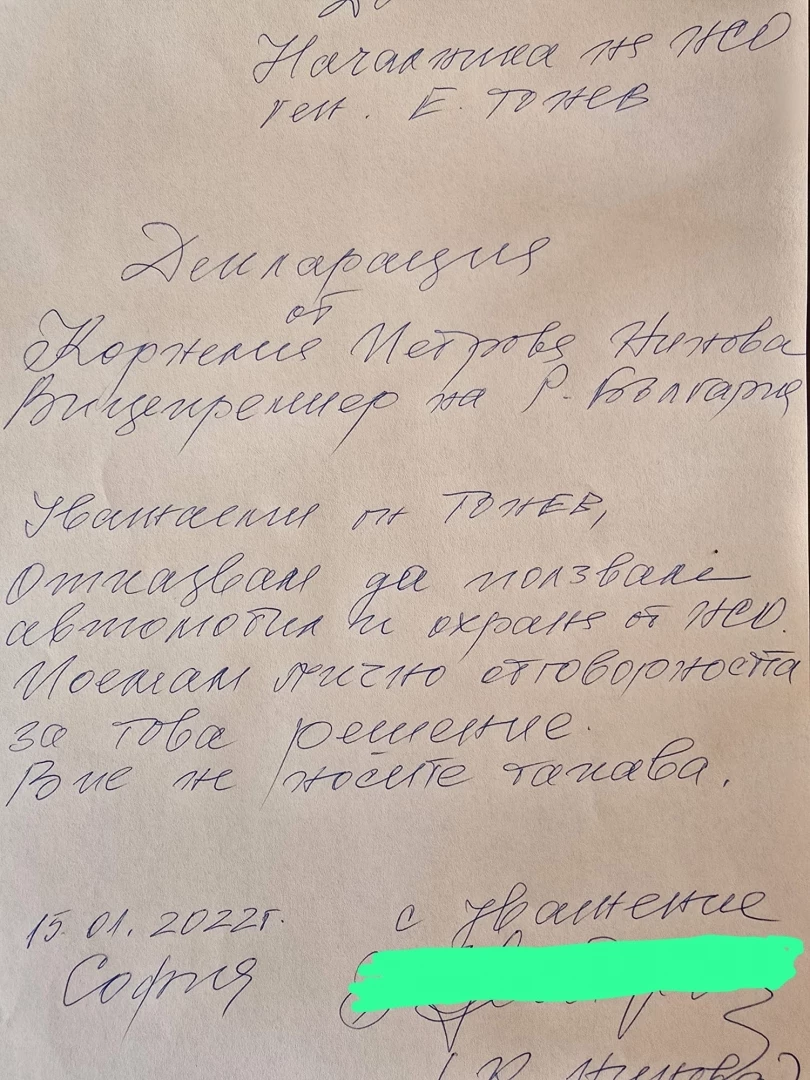 До
Началника на НСО
ген. Е. Тонев
Декларация
от
Корнелия Петрова Нинова
Вицепремиер на Р. България
Уважаеми г-н Тонев,
Отказвам да ползвам
автомобил и охрана от НСО.
Поемам лично отговорността
за това решение.
Вие не носите такава.
15.01.2022г. с уважение
София
(К. Нинова)